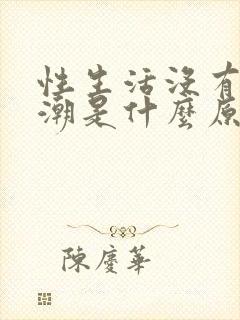 性生活没有
潮是什麼原
陳慶華